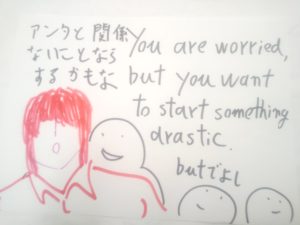 アンタと関係
ないことなら
するかもな
You are worried,
but you want
to start something
drastic.
butでよし